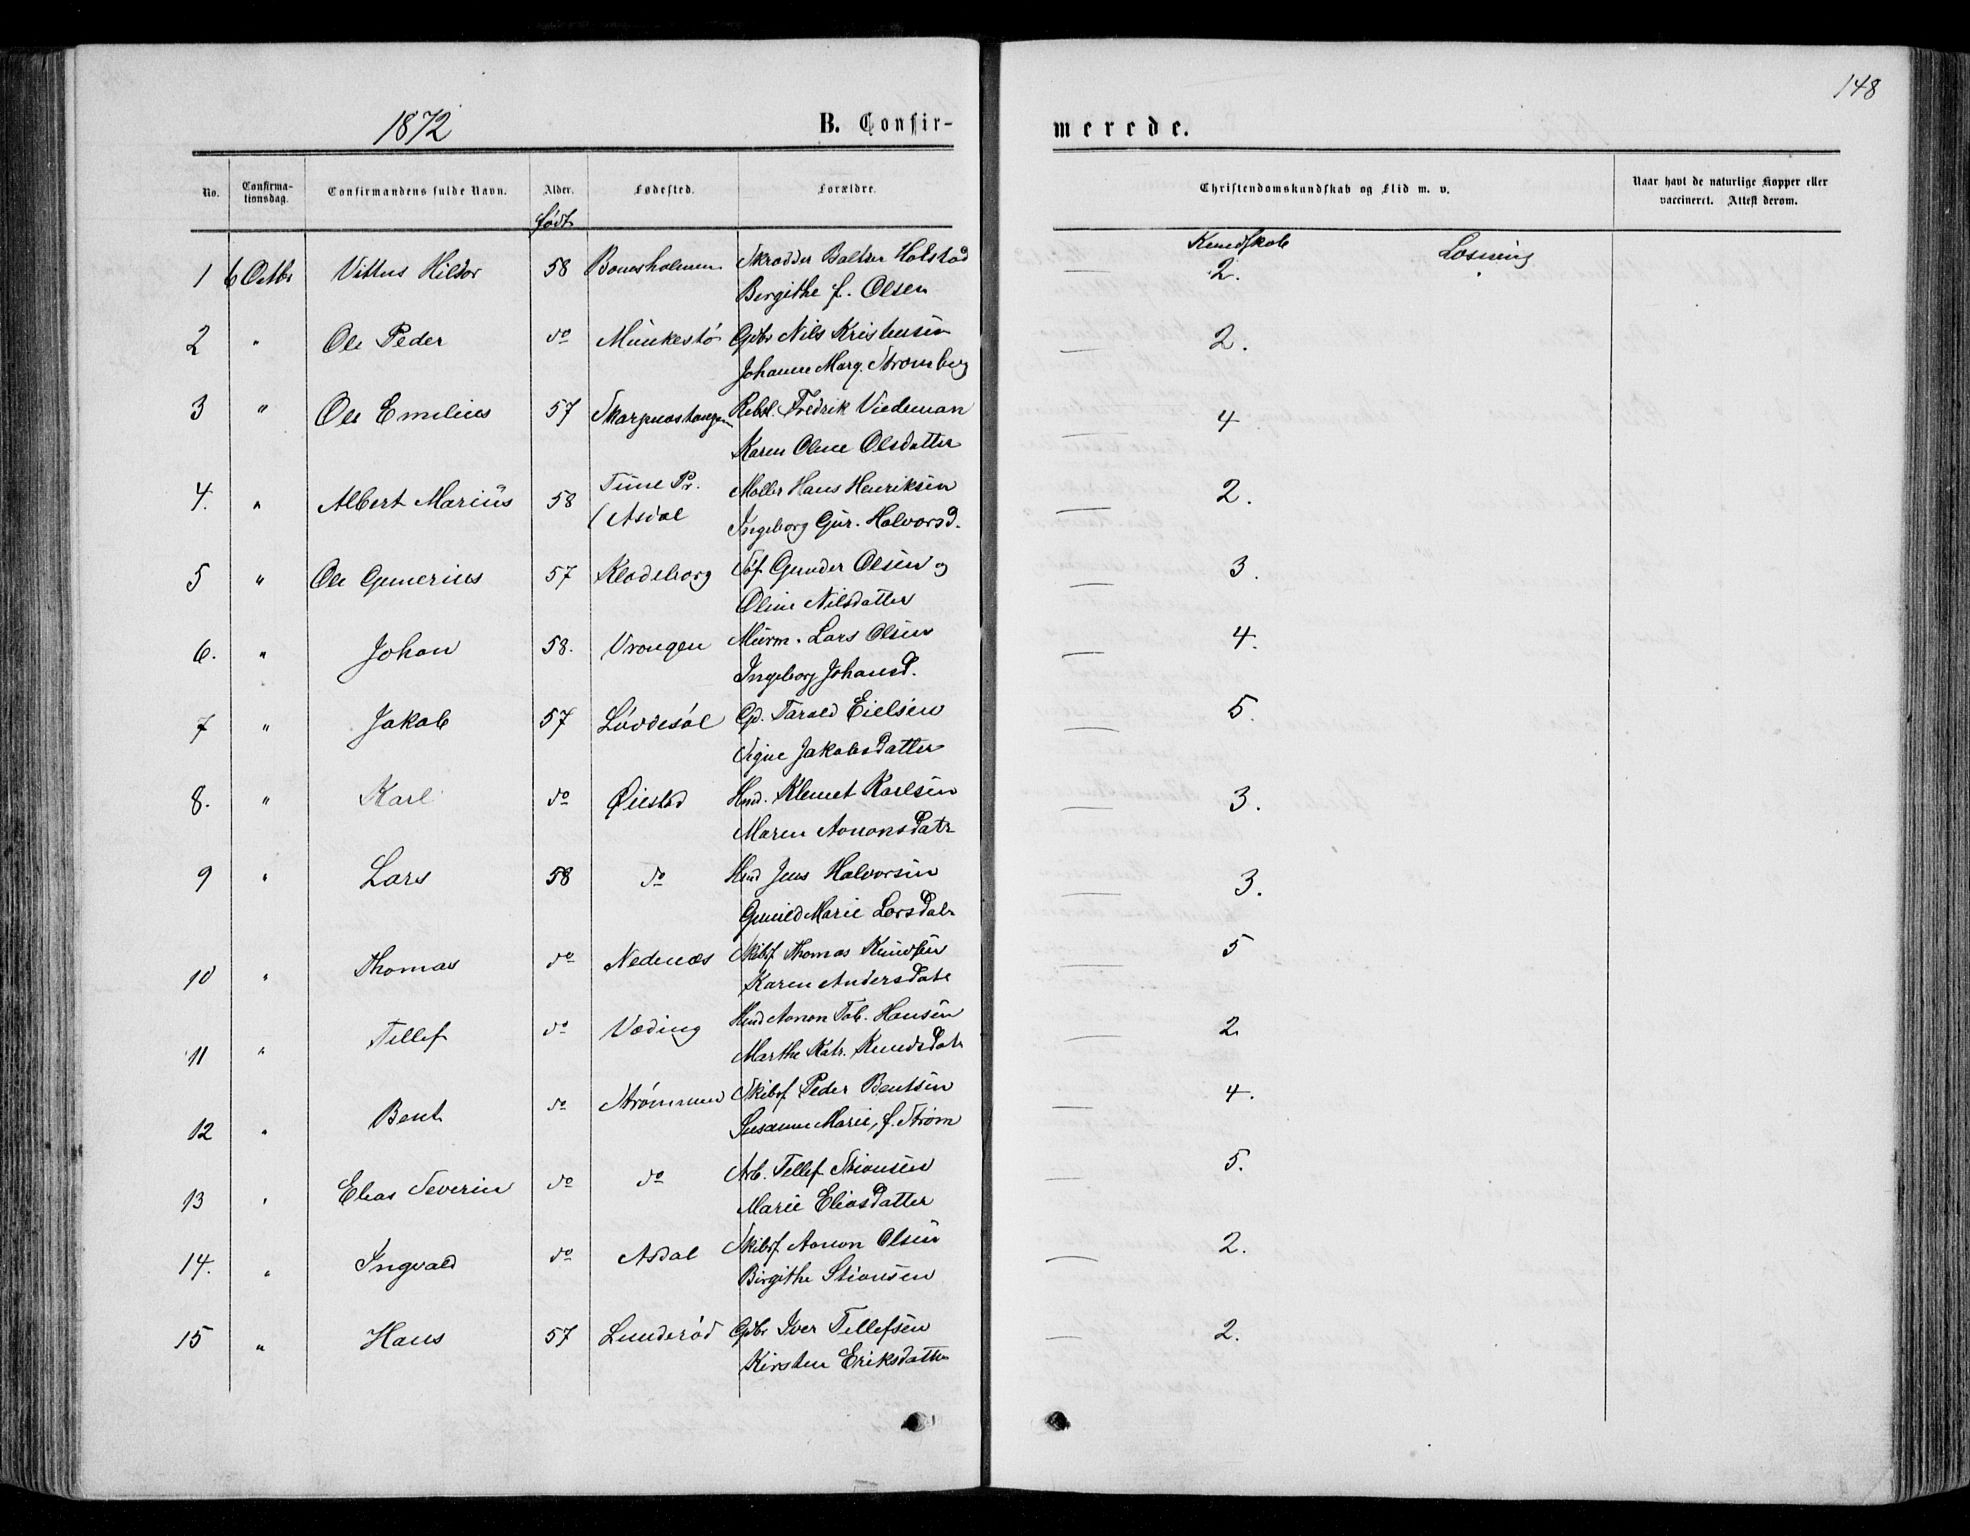 148
1872
B. Confir-
merede.
No.
Confirma-
tionsdag.
Confirmandens fulde Navn.
Alder.
Fødested.
Forældre.
Christendomskundskab og Flid m. v.
Naar havt de naturlige Kopper eller
vaccineret. Attest derom.
født
Kundskab
Læsning
1 6 Octbr Vittus Hildor 58 Bouesholmen Skrædder Baltser Holstad 2.
Birgithe f. Olsen
2 " Ole Peder do Munkestø Gdbr Nils Kristensen 2.
Johanne Marg. Stromberg
3 " Ole Emilius 57 Skarpnæstangen Rebsl. Fredrik Viedeman 4
Karen Oline Olsdatter
4. " Albert Marius 58 Tune Pr. Møller Hans Henriksen 2.
(Asdal Ingeborg Gur. Halvorsd.
5 " Ole Gunerius 57 Klodeborg Søf Gunder Olsen og 3.
Oline Nilsdatter
6. " Johan 58. Vrengen Murm. Lars Olsen 4.
Ingeborg Johansd.
7 " Jakob 57 Løvdesøl Gd. Tarald Eielsen 5.
Signe Jakobsdatter
8. " Karl do Øiestad Hmd. Klemet Karlsen 3.
Maren Aanonsdatr
9 " Lars 58 do Hmd Jens Halvorsen 3.
Gunild Marie Larsdatr
10 " Thomas do Nedenæs Skibsf Thomas Knudsen 5
Karen Andersdatr
11 " Tellef do Væding Hmd Aanon Tob. Hansen 2
Marthe Katr. Knudsdatr
12 " Bent do Strømmen Skibsf Peder Bentsen 4.
Susanne Marie, f. Strøm
13 " Elias Severin do do Arb. Tellef Stiansen 5.
Marie Eliasdatter
14. " Ingvald do Asdal Skibsf Aanon Olsen 2.
Birgithe Stiansen
15 " Hans 57 Lunderød Gdbr Iver Tellefsen 2.
Kirsten Eriksdatter